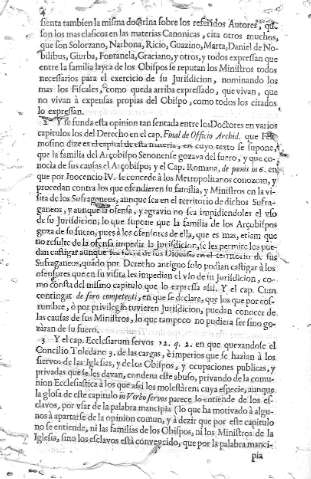 sienta tambien la misma doctrina sobre los referidos Autores, que
son los mas clasicos en las materias Canonicas, cita otros muchos,
que son Solorzano, Narbona, Ricio, Guazino, Marta, Daniel de No-
bilibus, Giurba, Fontanela, Graciano, y otros, y todos expressan que
entre la familia layca de los Obispos se reputan los Ministros todos
necessarios para el exercicio de su Jurisdicion, nominando los
mas los Fiscales, como queda arriba expressado, que vivan, que
no vivan à expensas propias del Obispo, como todos los citados
lo expressan.
2 Y se funda esta opinion tan sentada entre los Doctores en varios
capitulos los del Derecho en el cap. Final de Officio Archid. que
mosino dize es el capital de esta materia, en cuyo texto se supone,
que la familia del Arçobispo Senonense gozava del fuero, y que co-
nocia de sus causas el Arçobispo; y el Cap. Romana, de pœnis in 6. en
que por Inocencio IV. se concede à los Metropolitanos conozcan, y
procedan contra los que ofendieren su familia, y Ministros en la vi-
sita de los Sufraganeos, aunque sea en el territorio de dichos Sufra-
ganeos, y aunque la ofensa, y agravio no sea impidiendoles el vso
de su Jurisdicion, lo que supone que la familia de los Arçobispos
goza de su fuero, pues à los ofensores de ella, que es mas, etiam que
no resulte de la ofensa impedir la jurisdicion, se les permite los pue-
dan castigar aunque
Sufraganeo, quando por Derecho antiguo solo podian castigar à los
ofensores que en su visita les impedian el vso de su Jurisdicion, co-
mo consta del mismo capitulo que lo expressa assi. Y el cap. Cum
contingat de foro competenti, en que se declara, que los que por cos-
tumbre, ò por privilegio tuvieren Jurisdicion, puedan conocer de
las causas de sus Ministros, lo que tampoco no pudiera ser sino go-
zàran de su fuero.
3 Y el cap. Ecclesiarum servos 12. q. 2. en que quexandose el
Concilio Toledano 3. de las cargas, è imperios que se hazian à los
siervos de las Iglesias, y de los Obispos, y ocupaciones publicas, y
privadas que se les davan, condena este abuso, privando de la comu-
nion Ecclesiastica à los que assi los molestàren; cuya especie, aunque
la glosa de este capitulo in Verbo servos parece lo entiende de los es-
clavos, por vsar de la palabra mancipia (lo que ha motivado à algu-
nos à apartarse de la opinion comun, y à dezir que por este capitulo
no se entiende, ni las familias de los Obispos, ni los Ministros de la
Iglesia, sino los esclavos està convencido, que por la palabra manci-
pia